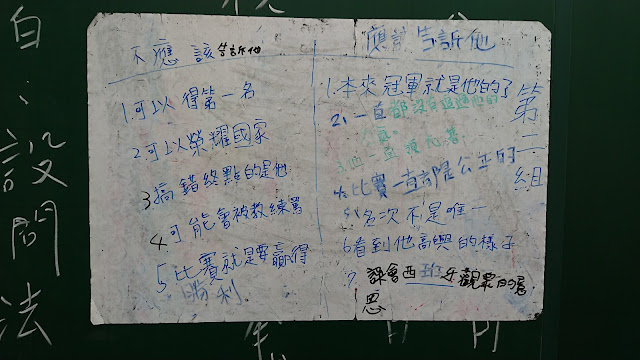 自:設問法
不應該告訴他
1.可以得第一名
2可以榮耀國家
3搞錯終點的是他
4可能會被教練罵
5比賽就是要贏得
勝利
應該告訴他
1.本來冠軍就是他的了
2、一直都沒有
3.他一直領先著
4、比賽一直都是公正的
5、名次不是唯一
6看到他高興的樣子
7誤會西班牙觀眾的意
思
第二組